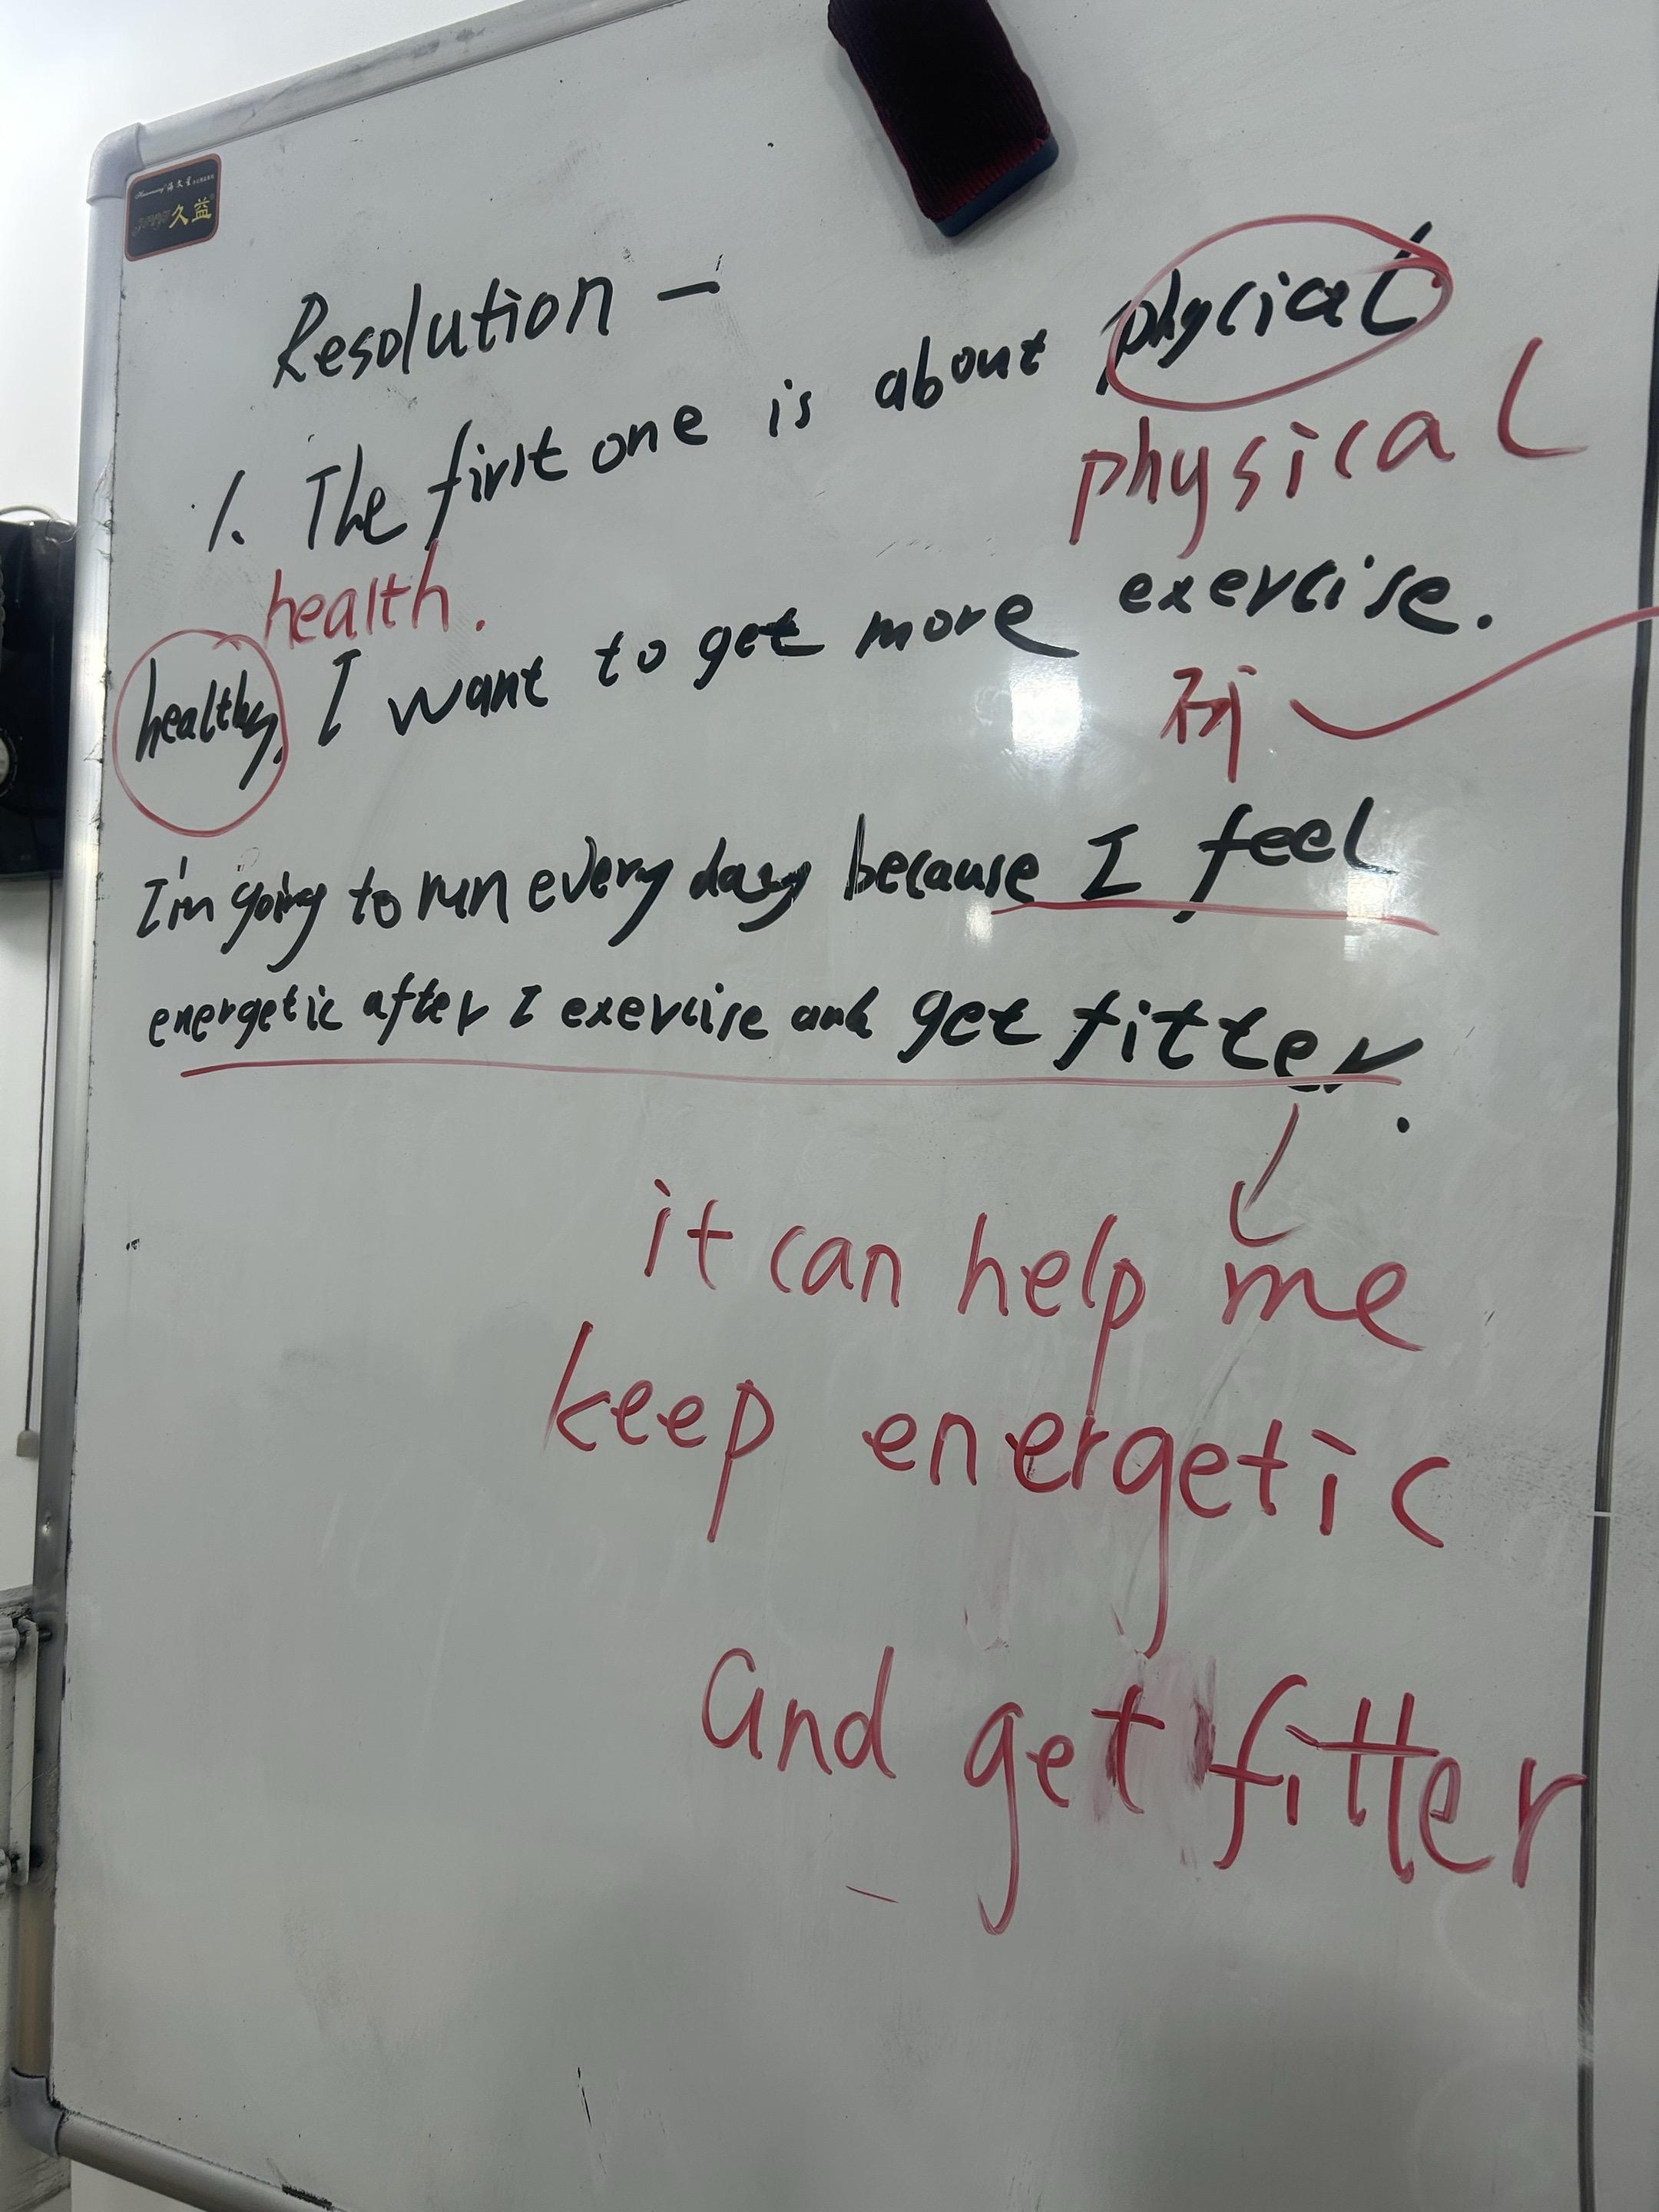 久益
Resolution —
1. The first one is about phycial
physical
health.
healthy, I want to get more exercise.
I'm going to run every day because I feel
energetic after I exercise and get fitter.
it can help me
keep energetic
and get fitter